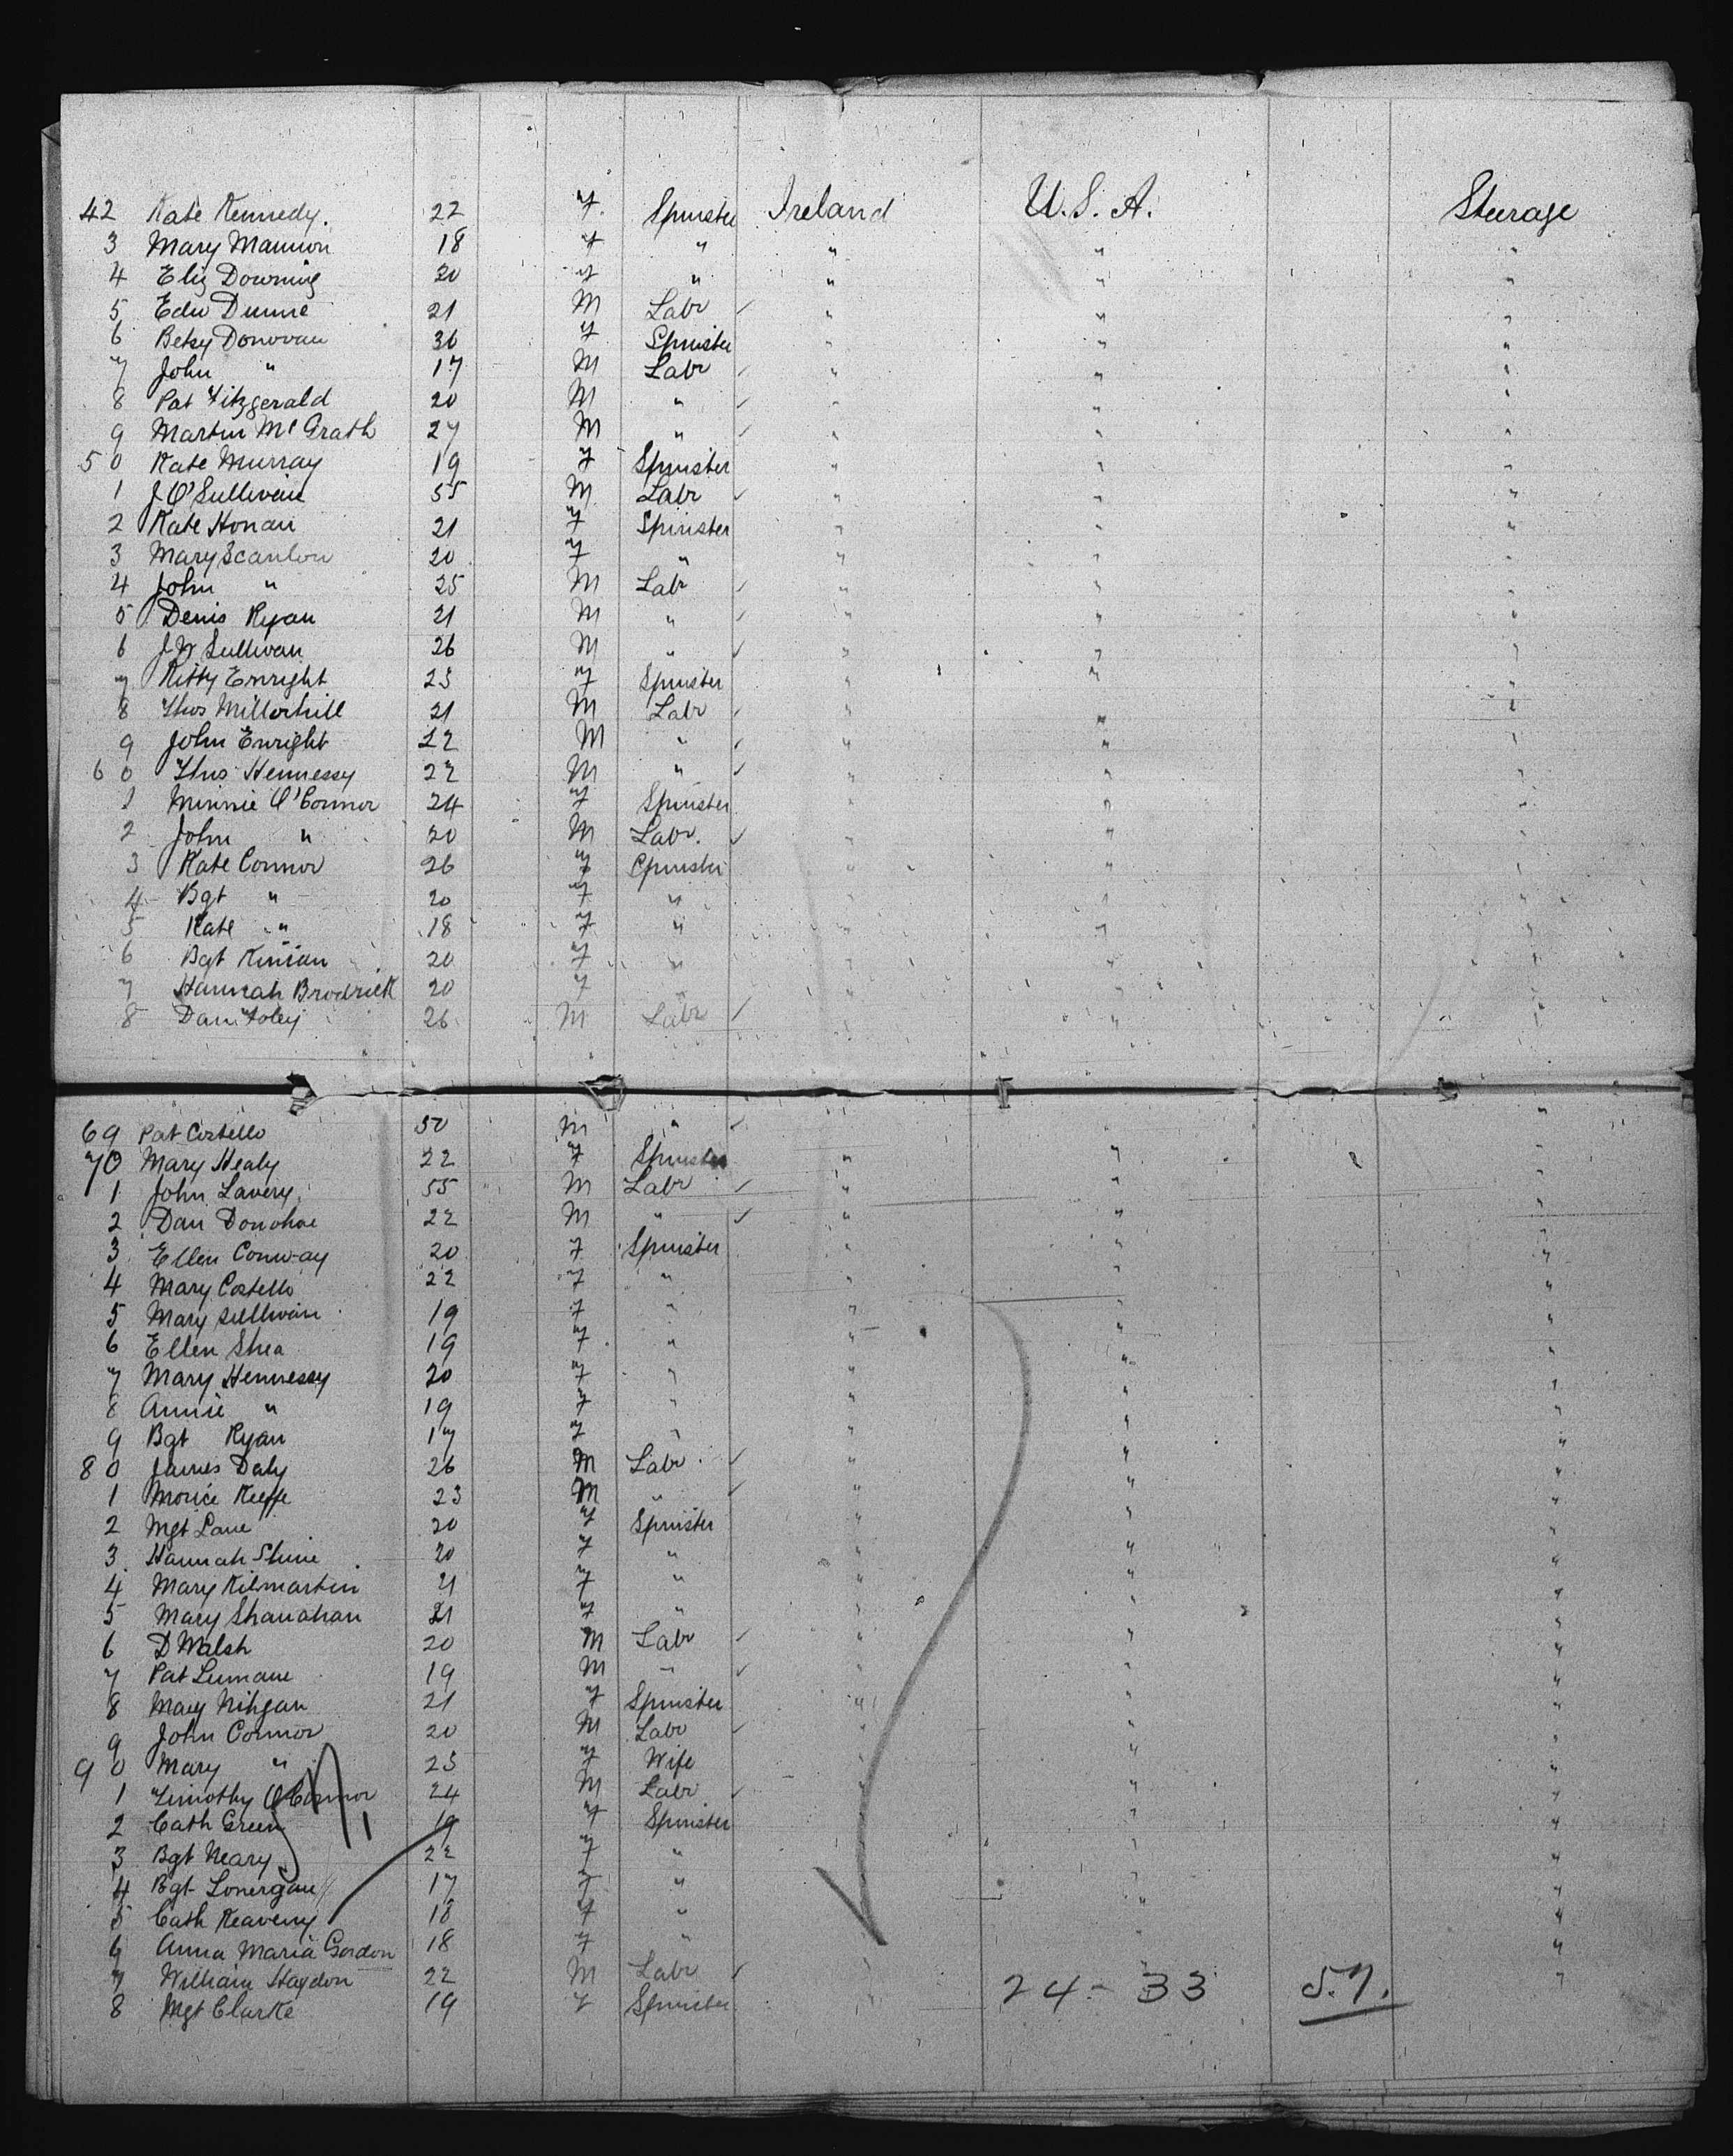 42 Kate Kennedy. 22 f. Spinster Ireland U.S.A. Steerage
3 Mary Mannion 18 f " " " "
4 Eliz Downing 20 f " " " "
5 Edw Dunne 21 M Labr ✓ " " "
6 Betsy Donovan 30 f Spinster " " "
7 John " 17 M Labr ✓ " " "
8 Pat Fitzgerald 20 M " ✓ " " "
9 Martin McGrath 27 M " ✓ " " "
50 Kate Murray 19 f Spinster " " "
1 J O'Sullivan 55 M Labr ✓ " " "
2 Kate Honan 21 f Spinster " " "
3 Mary Scanlon 20 f " " " "
4 John " 25 M Labr ✓ " " "
5 Denis Ryan 21 M " ✓ " " "
6 Sullivan 26 M " ✓ " " "
7 Kitty Enright 23 f Spinster " " "
8 Thos 21 M Labr ✓ " " "
9 John Enright 22 M " ✓ " " "
60 Thos Hennessy 22 M " ✓ " " "
1 Minnie O'Connor 24 f Spinster " " "
2 John " 20 M Labr. ✓ " " "
3 Kate Connor 26 f Spinster " " "
4 Bgt " 20 f " " " "
5 Kate " 18 f " " " "
6 Bgt 20 f " " " "
7 Hannah Brodrick 20 f " " " "
8 Dan Foley 26 M Labr ✓ " " "
69 Pat Costello 50 M " ✓ " " "
70 Mary Healy 22 f Spinster " " "
1 John Lavery 55 M Labr ✓ " " "
2 Dan Donohoe 22 M " ✓ " " "
3 Ellen Conway 20 f Spinster " " "
4 Mary Costello 22 f " " " "
5 Mary Sullivan 19 f " " " "
6 Ellen Shea 19 f " " " "
7 Mary Hennessy 20 f " " " "
8 Annie " 19 f " " " "
9 Bgt Ryan 17 f " " " "
80 James Daly 26 M Labr ✓ " " "
1 Morice Keeffe 23 M " ✓ " " "
2 Mgt Lane 20 f Spinster " " "
3 Hannah Shine 20 f " " " "
4 Mary Kilmartin 21 f " " " "
5 Mary Shanahan 21 f " " " "
6 D Walsh 20 M Labr ✓ " " "
7 Pat 19 M " ✓ " " "
8 Mary 21 f Spinster " " "
9 John Connor 20 M Labr ✓ " " "
90 Mary " 23 f Wife " " "
1 Timothy O'Connor 24 M Labr ✓ " " "
2 Cath Green 19 f Spinster " " "
3 Bgt Neary 22 f " " " "
4 Bgt Lonergan 17 f " " " "
5 Cath Keaveny 18 f " " " "
6 Anna Maria Gordon 18 f " " " "
7 William Haydon 22 M Labr ✓ " " "
8 Mgt Clarke 19 f Spinster " 24 - 33 57.